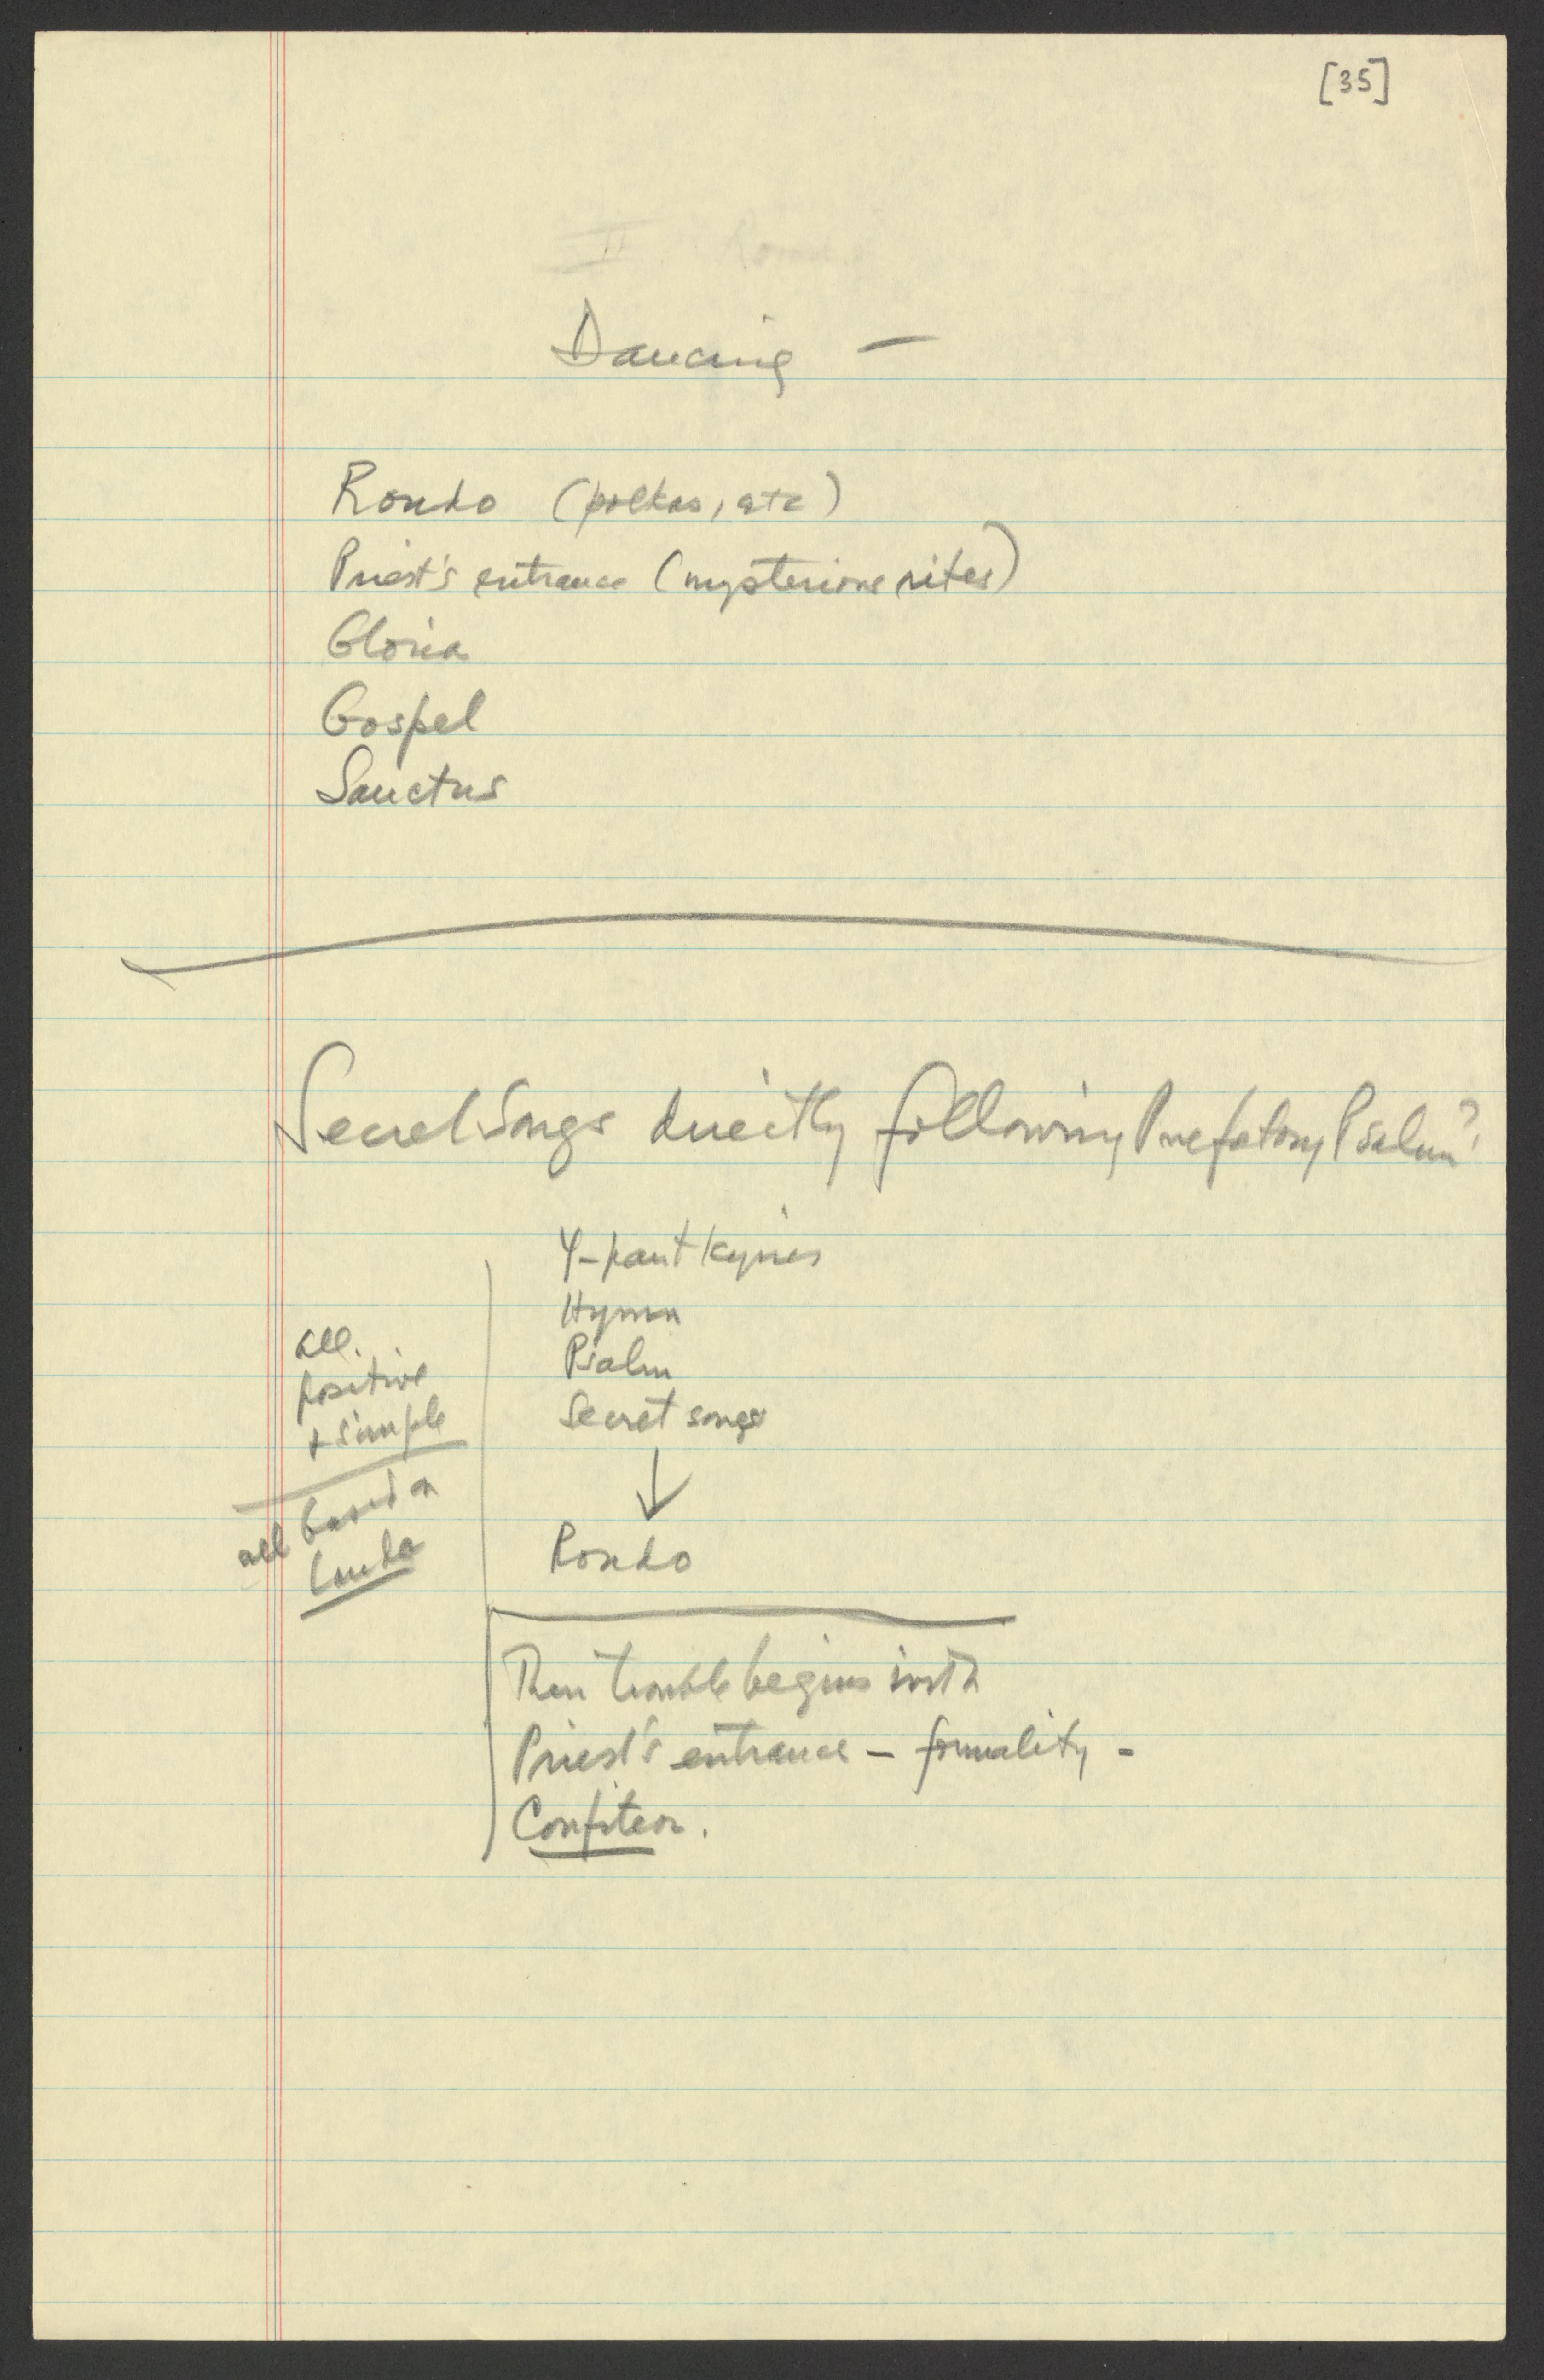 [35]
II Rondo
Dancing —
Rondo (polkas, etc)
Priest's entrance (mysterious rites)
Gloria
Gospel
Sanctus
Secret Songs directly following Prefatory Psalm?
4-part Kyries
Hymn
Psalm
Secret songs
↓
Rondo
all
positive
+ simple
all based on
Lauda
Then trouble begins with
Priest's entrance — formality –
Confiteor.